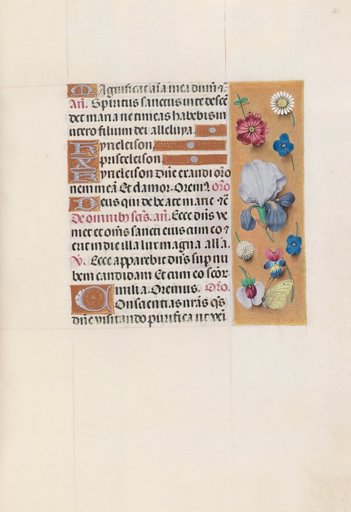 Magnificat aīa mea dnm̄ ⁊c̄.
Añ. Spiritus sanctus in te descē
det maria ne timeas habebis in
utero filium dei alleluya.
Kyrieleison.
Xpisteleison
Kyrieleison Dn̄e exaudi oro
nem meā Et clamor. Oremꝰ. Oro̅
Deus qui de beate marie ⁊c̄
De omnibꝰ scīs. añ. Ecce dn̄s ve
niet et om̄s sancti eius cum eo ⁊
erit in die illa lux magna alľa.
℣. Ecce apparebit dn̄s sup nu
bem candidam Et cum eo scōr
milia. Oremus. Oro̅.
Consciētias nr̄as qs̄
dn̄e visitando purifica ut veī